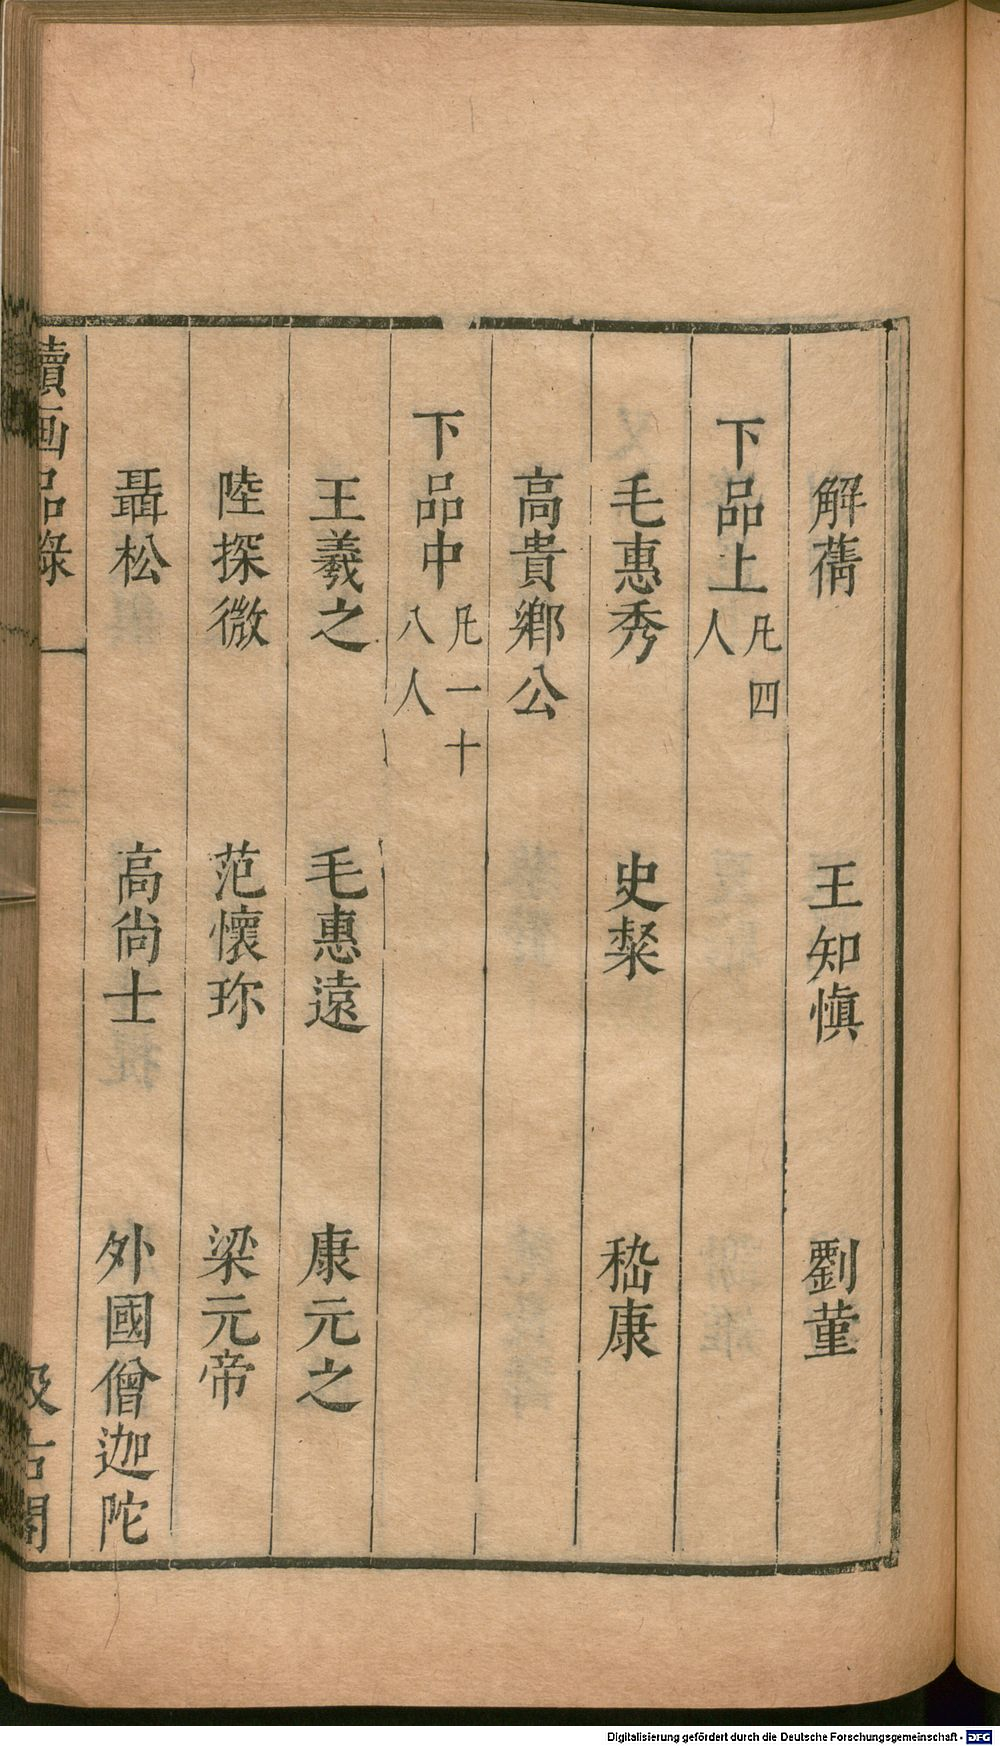 解蒨 王知愼 劉菫
下品上 凡四人
毛惠秀 史粲 嵇康
高貴鄉公
下品中 凡一十八人
王羲之 毛惠遠 康元之
陸探微 范懷珎 梁元帝
聶松 高尙士 外國僧迦陀
續画品錄 一 汲古閣
Digitalisierung gefördert durch die Deutsche Forschungsgemeinschaft - DFG